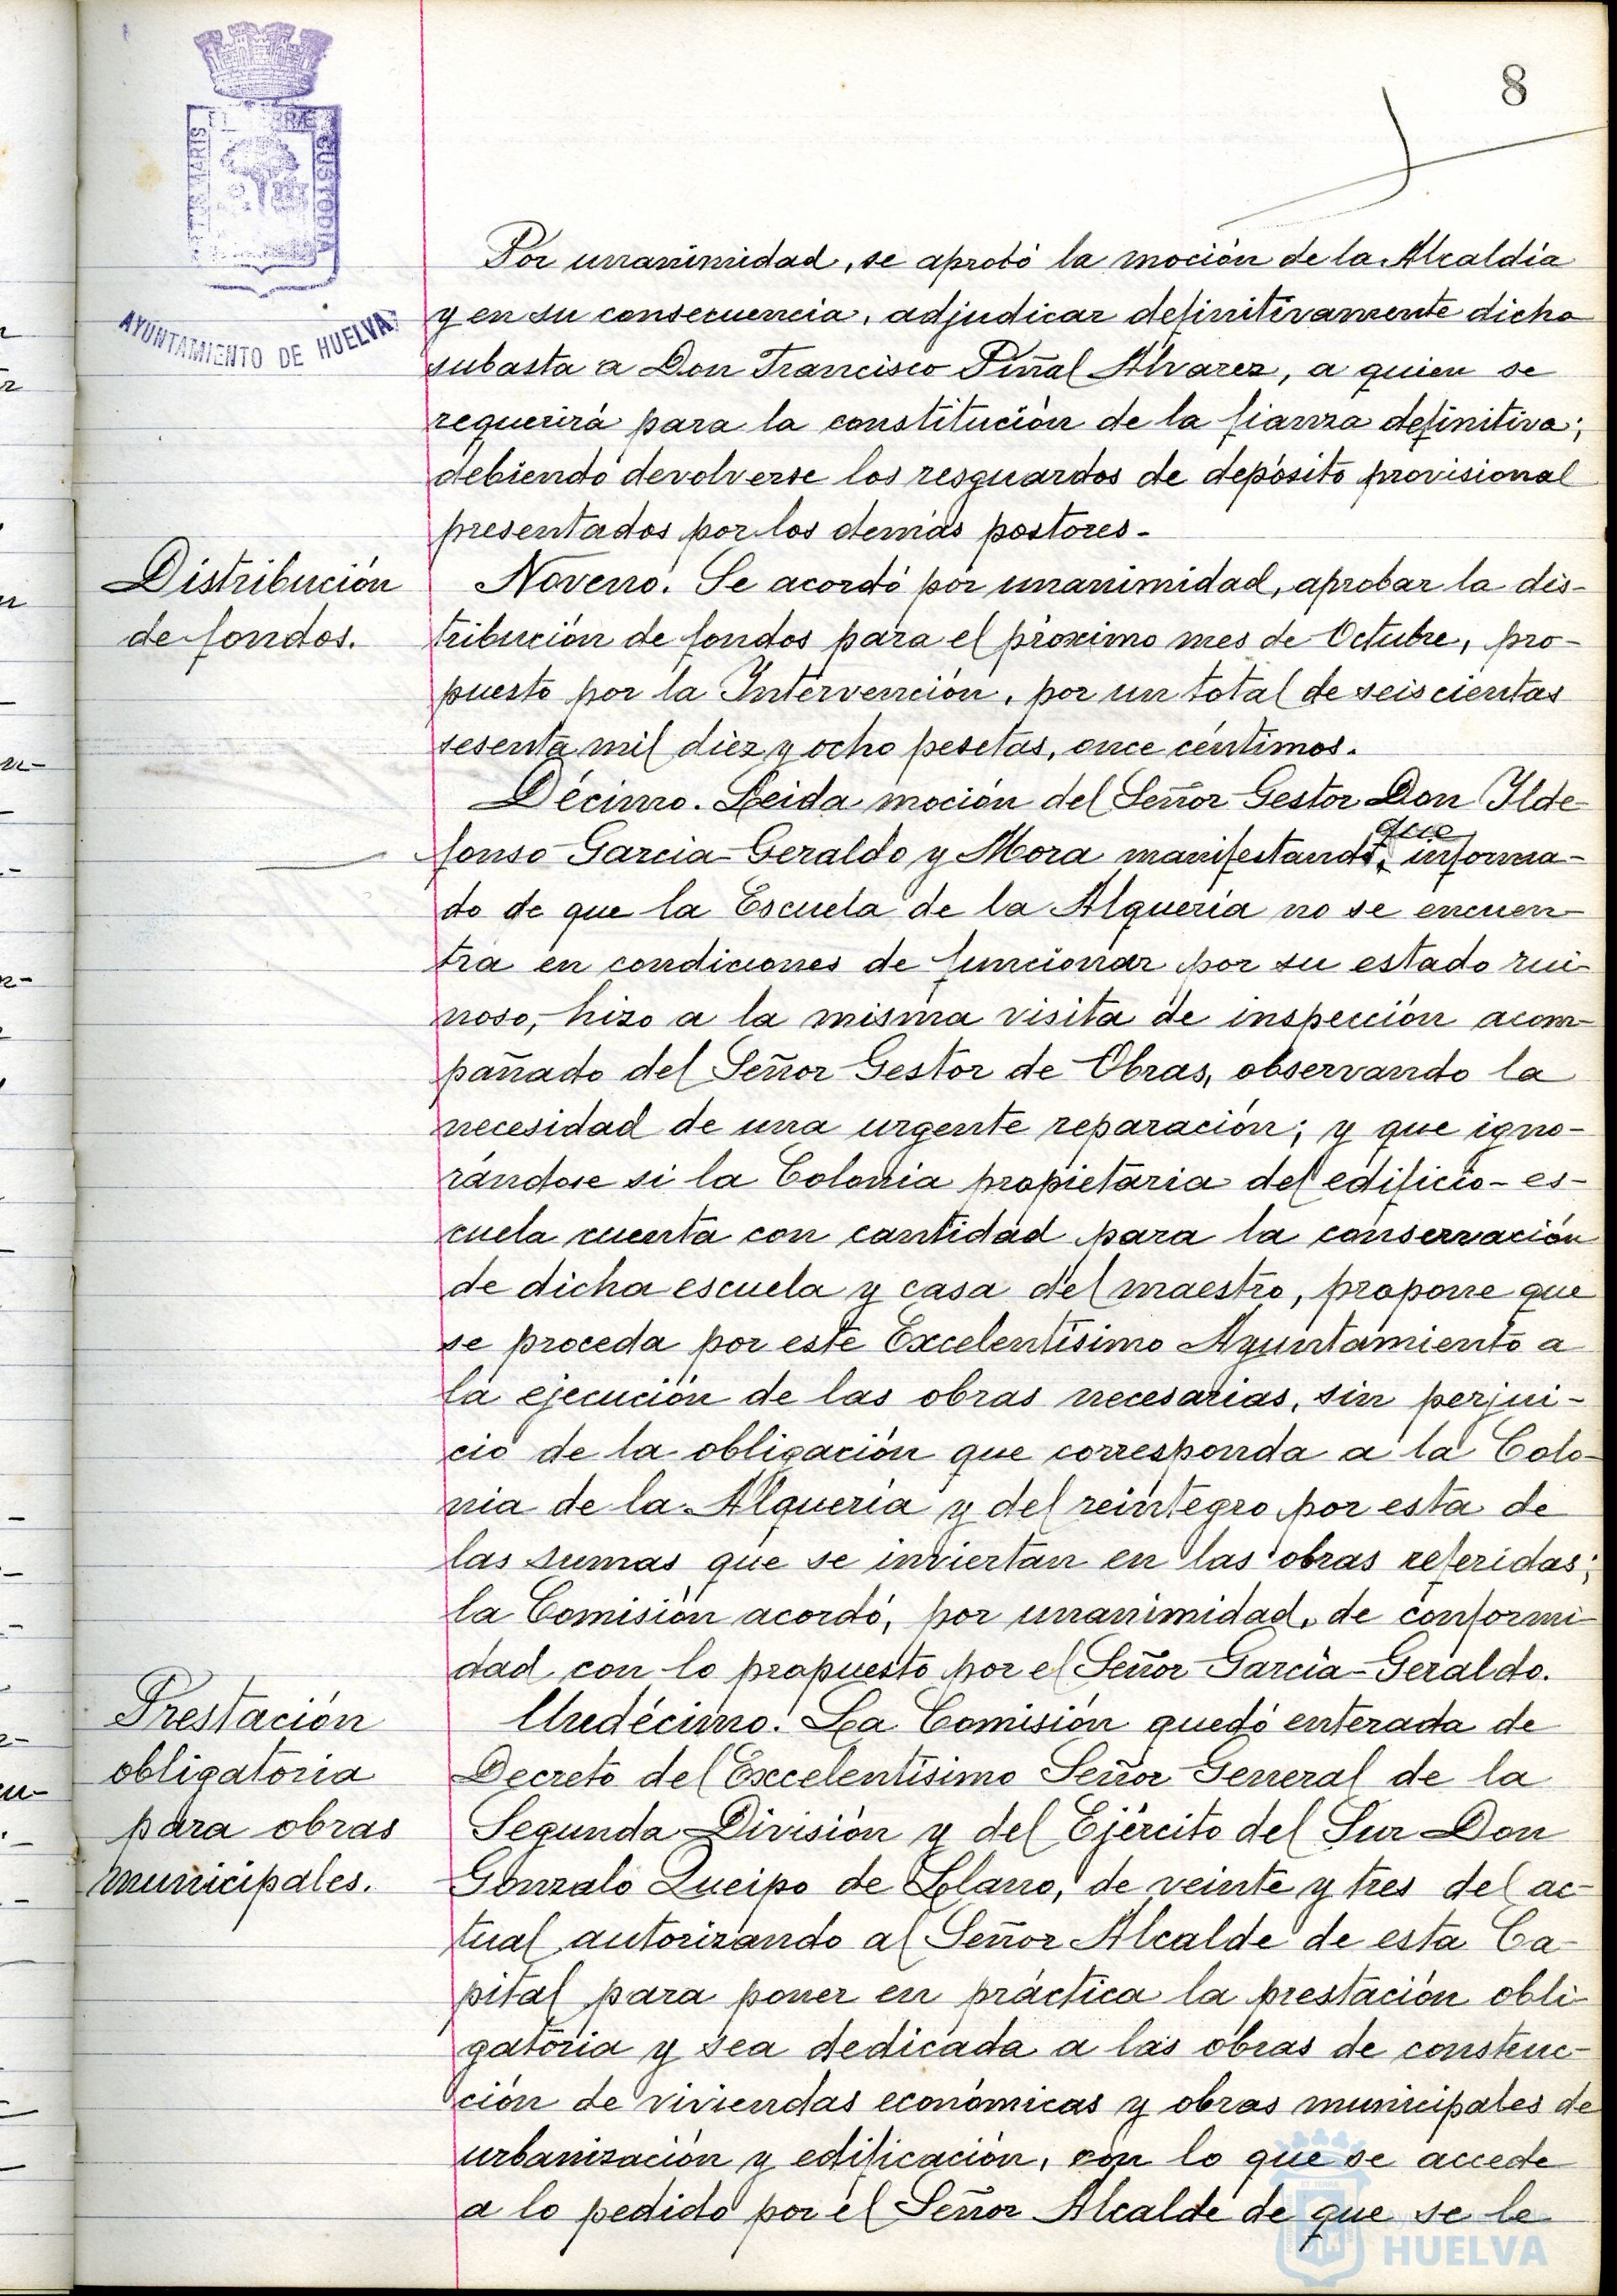 8
PORTUS MARIS ET TERRAE CUSTODIA
AYUNTAMIENTO DE HUELVA
Por unanimidad, se aprobó la moción de la Alcaldía
y en su consecuencia, adjudicar definitivamente dicha
subasta a Don Francisco Piñal Alvarez, a quien se
requerirá para la constitución de la fianza definitiva;
debiendo devolverse los resguardos de depósito provisional
presentados por los demás postores.-
Distribución
de fondos.
Noveno. Se acordó por unanimidad, aprobar la dis-
tribución de fondos para el próximo mes de Octubre, pro-
puesto por la Intervención, por un total de seiscientas
sesenta mil diez y ocho pesetas, once céntimos.
Décimo. Leida moción del Señor Gestor Don Ilde-
fonso Garcia-Geraldo y Mora manifestando, que informa-
do de que la Escuela de la Alquería no se encuen-
tra en condiciones de funcionar por su estado rui-
noso, hizo a la misma visita de inspección acom-
pañado del Señor Gestor de Obras, observando la
necesidad de una urgente reparación; y que igno-
rándose si la Colonia propietaria del edificio-es-
cuela cuenta con cantidad para la conservación
de dicha escuela y casa del maestro, propone que
se proceda por este Excelentísimo Ayuntamiento a
la ejecución de las obras necesarias, sin perjui-
cio de la obligación que corresponda a la Colo-
nia de la Alquería y del reintegro por esta de
las sumas que se inviertan en las obras referidas;
la Comisión acordó, por unanimidad, de conformi-
dad con lo propuesto por el Señor García-Geraldo.
Prestación
obligatoria
para obras
municipales.
Undécimo. La Comisión quedó enterada de
Decreto del Excelentísimo Señor General de la
Segunda División y del Ejército del Sur Don
Gonzalo Queipo de Llano, de veinte y tres del ac-
tual autorizando al Señor Alcalde de esta Ca-
pital para poner en práctica la prestación obli-
gatoria y sea dedicada a las obras de construc-
ción de viviendas económicas y obras municipales de
urbanización y edificación, con lo que se accede
a lo pedido por el Señor Alcalde de que se le
HUELVA